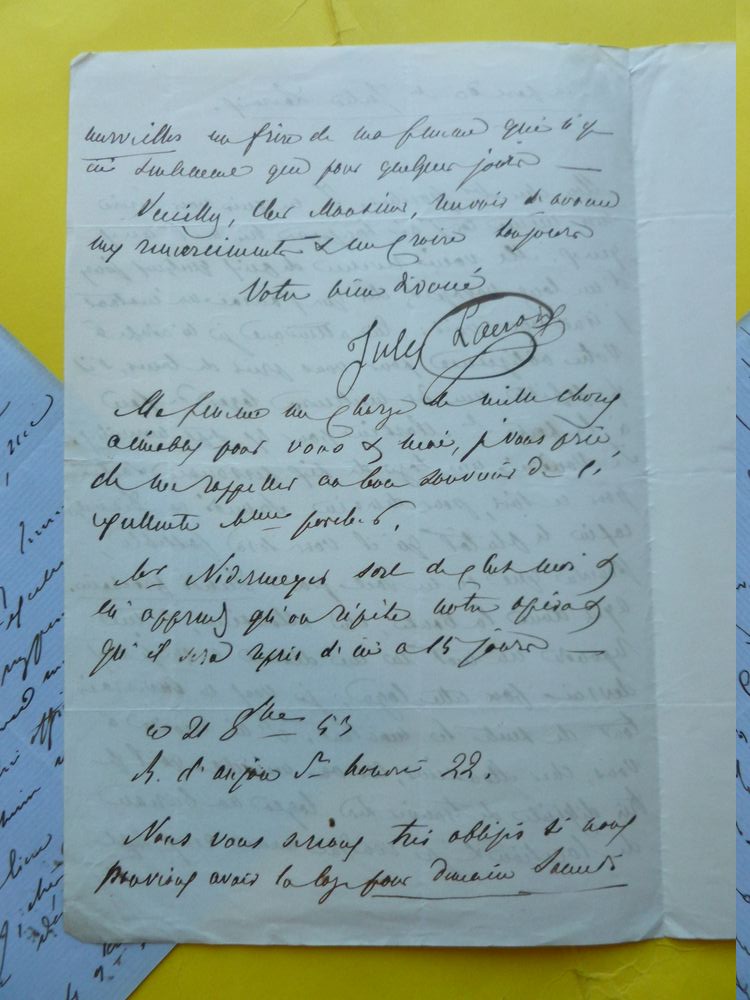 merveilles un frère de ma femme qui n'y
est seulement que pour quelques jours —
Veuillez, cher Monsieur, recevoir d'avance
mes remerciements & me croire toujours
Votre bien dévoué
Jules Lacroix
Ma femme me charge de mille choses
aimables pour vous & moi, je vous prie
de me rappeller au bon souvenir de l'
excellente
Mr Nidermeyer sort de chez moi &
m'apprend qu'on répète notre opéra &
qu'il sera repris d'ici a 15 jours —
ce 21 8bre 53
R. d'anjou St honoré 22.
Nous vous serions très obligés si nous
pouvions avoir la loge pour demain Samedi